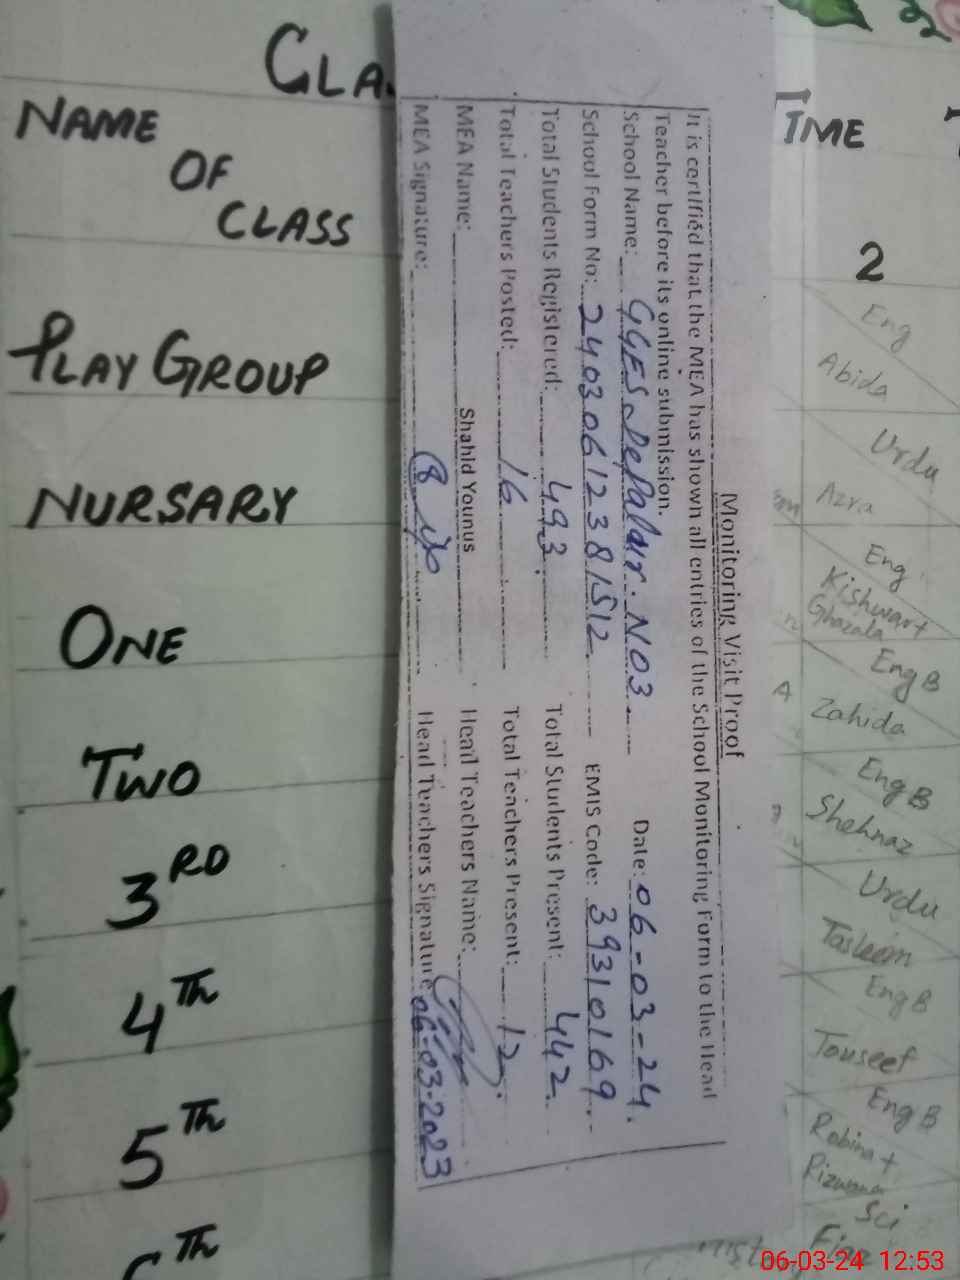 CLA
NAME
OF
CLASS
PLAY GROUP
NURSARY
ONE
TWO
3RD
4Th
5Th
Th
Monitoring Visit Proof
It is certified that the MEA has shown all entries of the School Monitoring Form to the Head
Teacher before its online submission.
School Name: GGES Depalair. NO3 Date: 06-03-24.
School Form No: 24030612381512 EMIS Code: 39310169
Total Students Registered: 493 Total Students Present: 442
Total Teachers Posted: 16 Total Teachers Present: 12
MEA Name: Shahid Younus Head Teachers Name:
MEA Signature: Head Teachers Signature 06-03-2023
TIME
2
Eng
Abida
Urdu
Azra
Eng
Kishwar+
Ghazala
Eng B
Zahida
Eng B
Shehnaz
Urdu
Tasleem
Eng B
Touseef
Eng B
Robina+
Rizwana
Sci
06-03-24 12:53